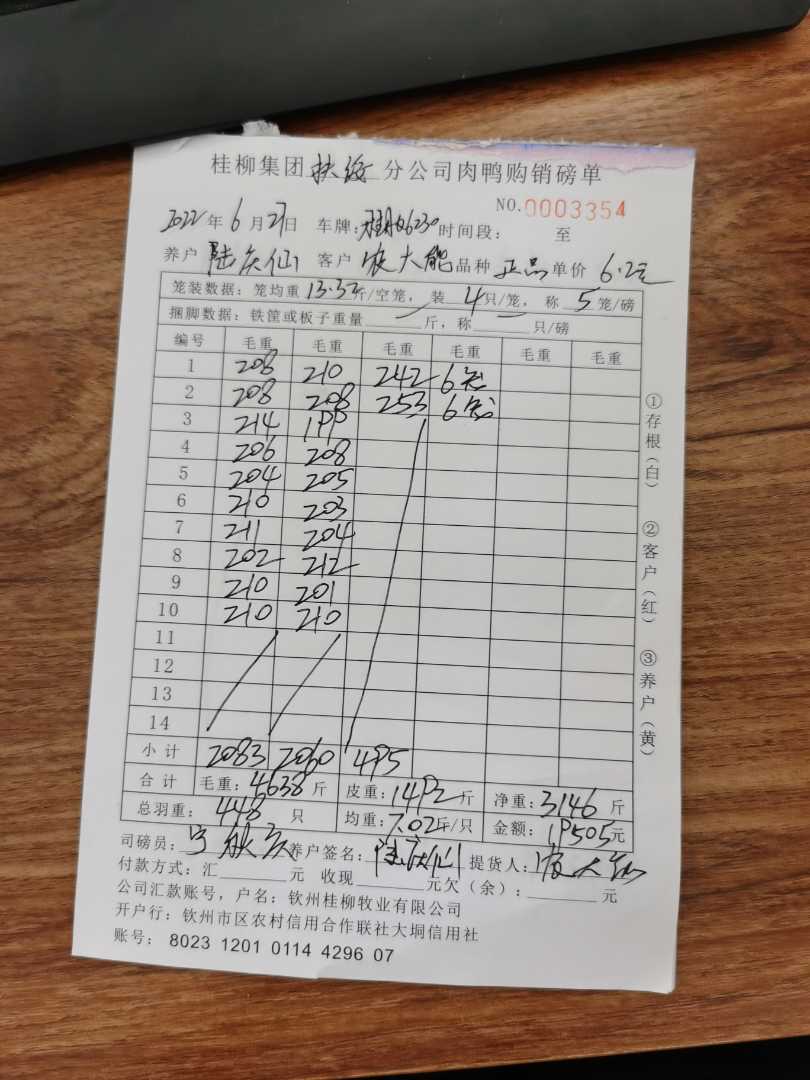 桂柳集团扶绥分公司肉鸭购销磅单
NO.0003354
2022年6月27日 车牌: 时间段: 至
养户 陆庆仙 客户 农大能 品种 正品 单价 6.2元
笼装数据: 笼均重 13.32斤/空笼, 装 4只/笼, 称 5笼/磅
捆脚数据: 铁筐或板子重量 斤, 称 只/磅
编号 毛重 毛重 毛重 毛重 毛重 毛重
1 208 210 242 6笼
2 208 208 253 6笼
3 214 199
4 206 208
5 204 205
6 210 203
7 211 204
8 202 212
9 210 201
10 210 210
11
12
13
14
小计 2083 2060 495
合计 毛重: 4638 斤 皮重: 1492斤 净重: 3146 斤
总羽重: 448 只 均重: 7.02斤/只 金额: 19505元
司磅员: 养户签名: 陆庆仙 提货人: 农大能
付款方式: 汇 元 收现 元欠(余): 元
公司汇款账号, 户名: 钦州桂柳牧业有限公司
开户行: 钦州市区农村信用合作联社大垌信用社
账号: 8023 1201 0114 4296 07
①存根(白) ②客户(红) ③养户(黄)